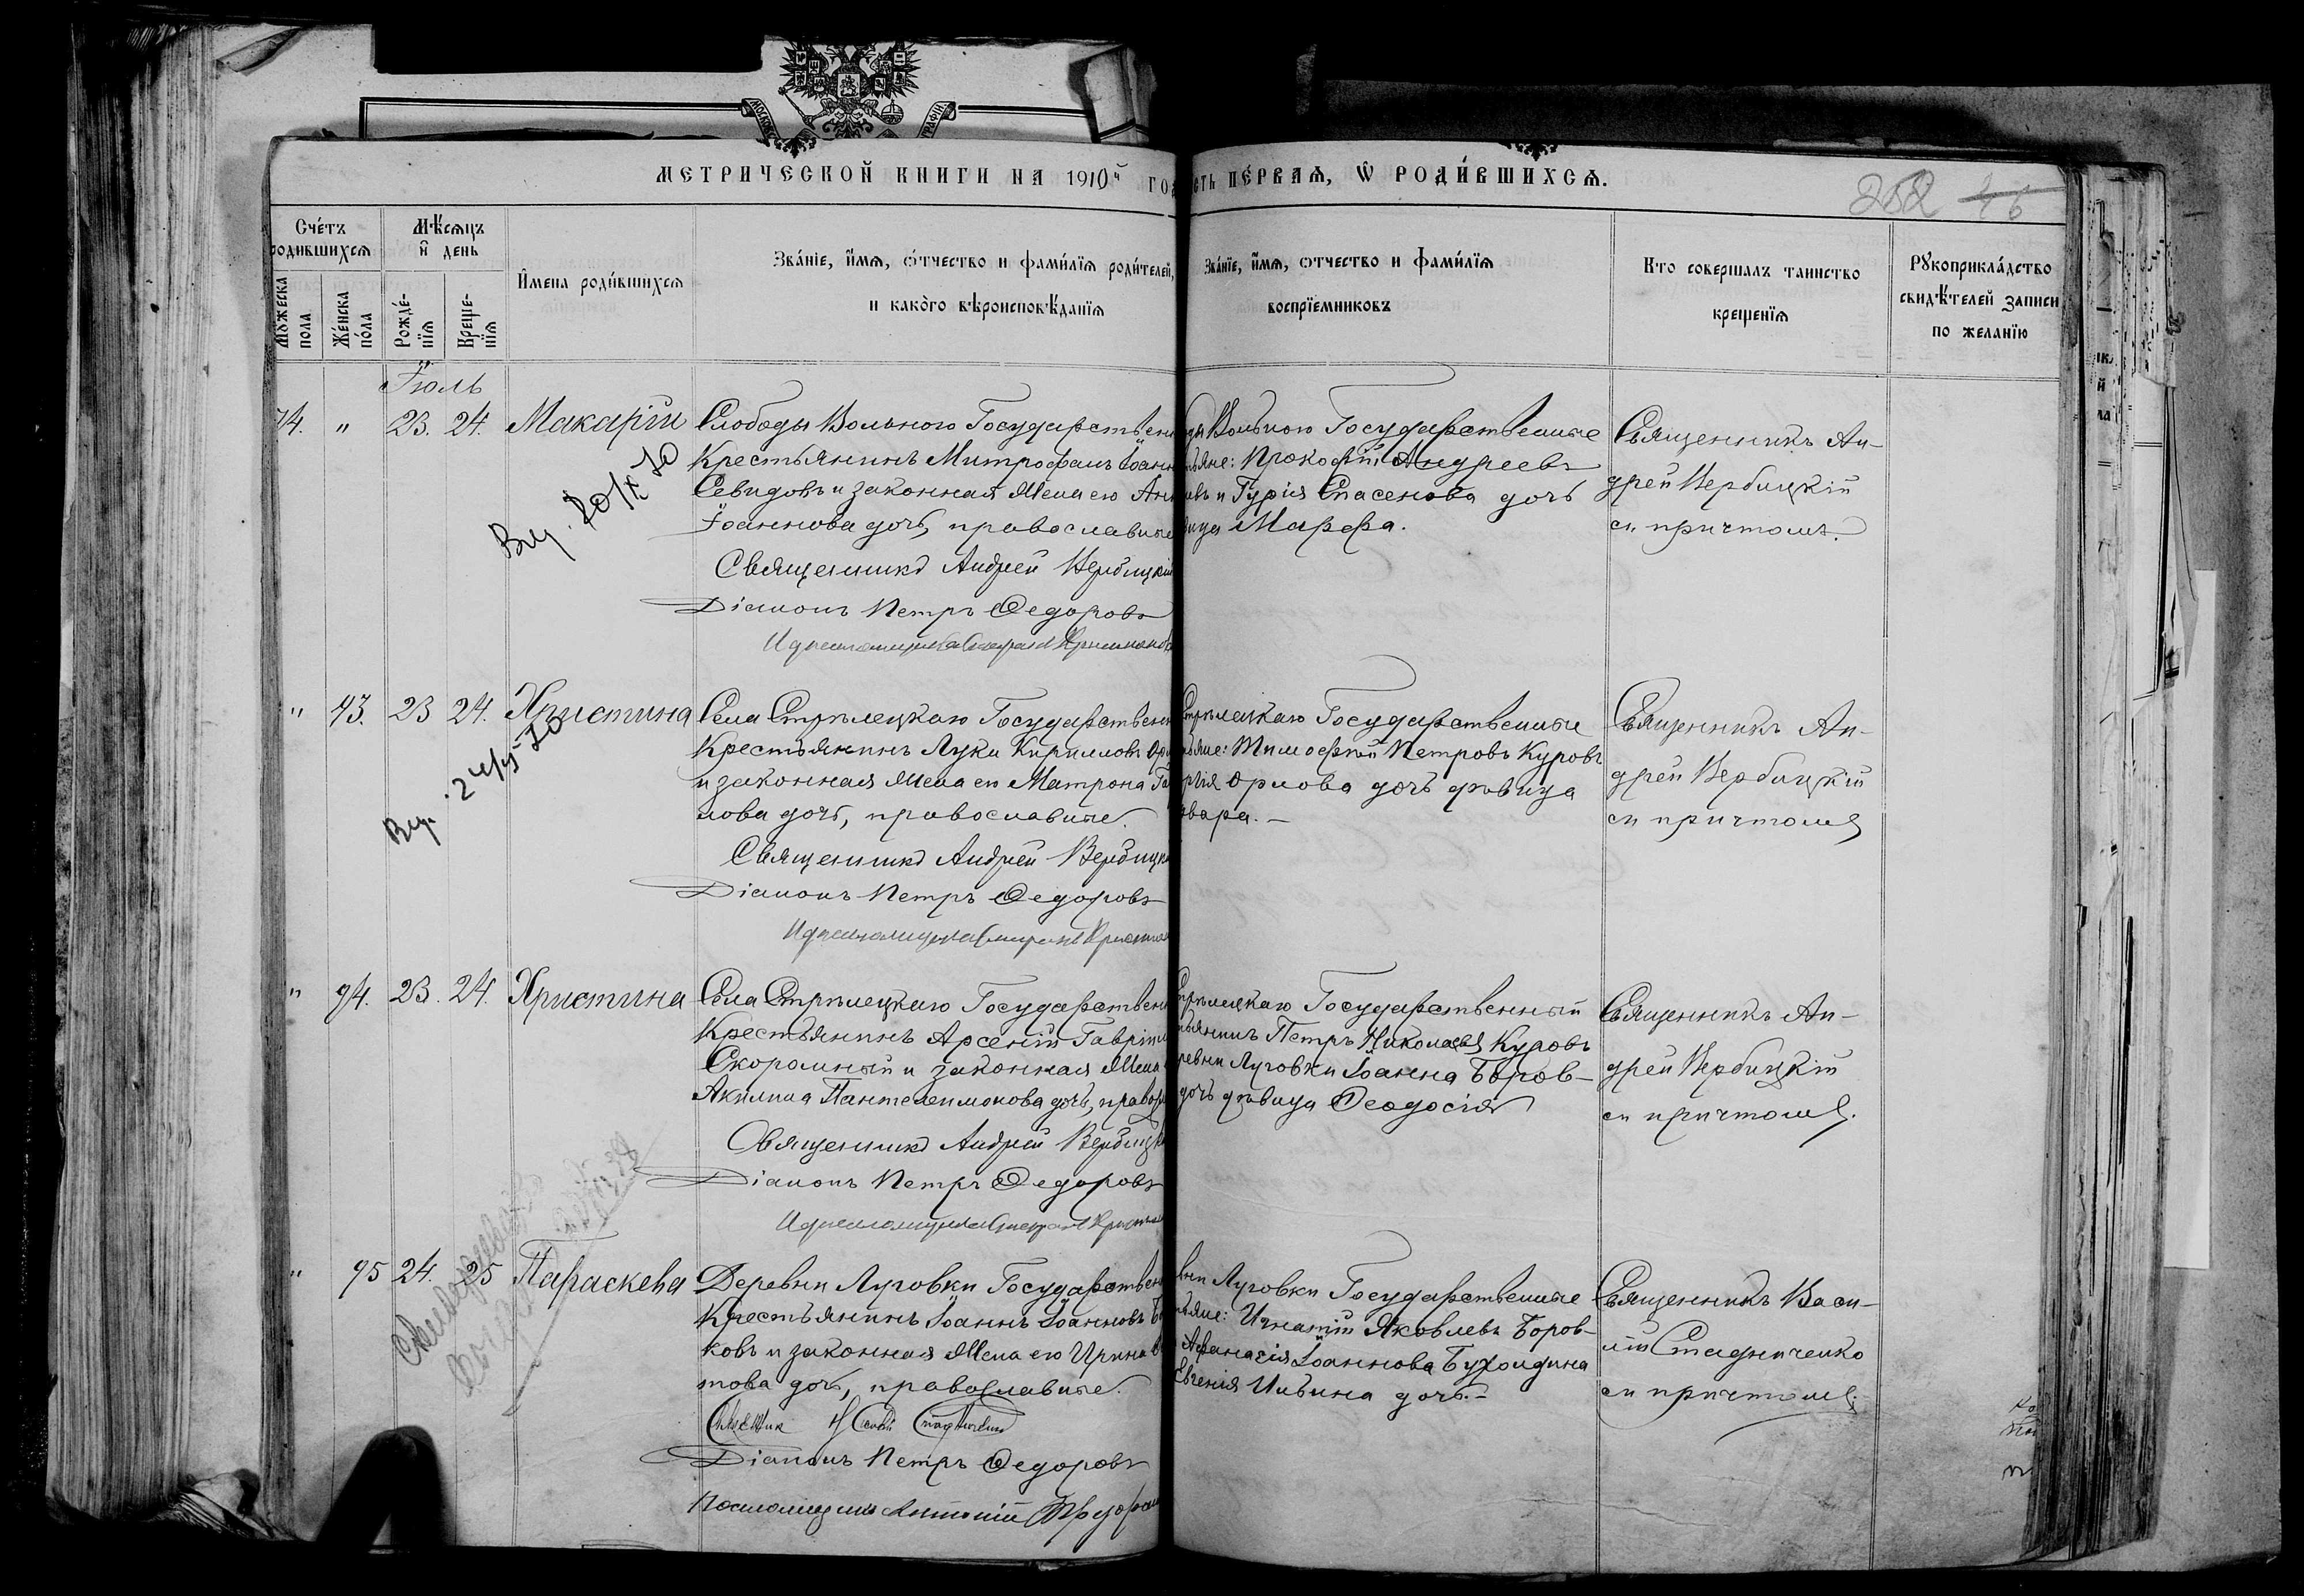 МЕТРИЧЕСКОЙ КНИГИ НА 1910й ГО
СТЬ ПЕ́РВАѦ, Ѡ РОДИ́ВШИХСѦ.
252 46
Сче́тъ родившихсѧ
Мѣ́сѧцъ и̂ день
Му́жеска пола
Же́нска по́ла
Рожде́нїѧ
Креще́нїѧ
И̂мена роди́вшихсѧ
Зва́нїе, и́мѧ, ѻ́тчество и фами́лїѧ роди́телей,
и како́го вѣроисповѣ́данїѧ
Зва́нїе, и́мѧ, ѻтчество и фами́лїѧ
воспрїемниковъ
Кто совершалъ таинство
крещенїѧ
Рꙋкоприкла́дство
свидѣ́телей записи
по желанїю
Іюль
74. " 23. 24. Макарій
Слободы Вольного Государствен
Крестьянинъ Митрофанъ Іоанн
Севидовъ и законная жена его Ан
Іоаннова дочь, православные
Священникъ Андрей Вербицкій
Діаконъ Петръ Федоровъ
Вольного Государственные
яне: Прокофій Андреевъ
въ и Гурія Спасенова дочь
вица Марфа.
Священникъ Ан-
дрей Вербицкій
съ причтомъ.
" 93. 23 24. Христина
Села Стрѣлецкаго Государствен
Крестьянинъ Лука Кирилловъ Ор
и законная жена его Матрона Га
лова дочь, православные.
Священникъ Андрей Вербицк
Діаконъ Петръ Федоровъ
Стрѣлецкаго Государственные
яне: Тимофей Петровъ Куровъ
гія Орлова дочь дѣвица
вара. –
Священникъ Ан-
дрей Вербицкій
съ причтомъ
" 94. 23. 24. Христина
Села Стрѣлецкаго Государствен
Крестьянинъ Арсеній Гавріил
Скоромный и законная жена
Акилина Пантелеимонова дочь, правос
Священникъ Андрей Вербицк
Діаконъ Петръ Федоровъ
трѣлецкаго Государственный
ьянинъ Петръ Николаевъ Куровъ
ревни Луговки Іоанна Боров-
дочь дѣвица Феодосія
Священникъ Ан-
дрей Вербицкій
съ причтомъ.
" 95 24. 25 Параскева
Деревни Луговки Государствен
Крестьянинъ Іоаннъ Іоанновъ Бо
ковъ и законная жена его Ирина
това дочь, православные.
Діаконъ Петръ Федоровъ
Псаломщикъ Антоній
вни Луговки Государственные
яне: Игнатій Яковлевъ Боров-
Афанасія Іоаннова Бухолдина
Евгенія Ильина дочь. –
Священникъ Васи-
лій Стадниченко
съ причтомъ.